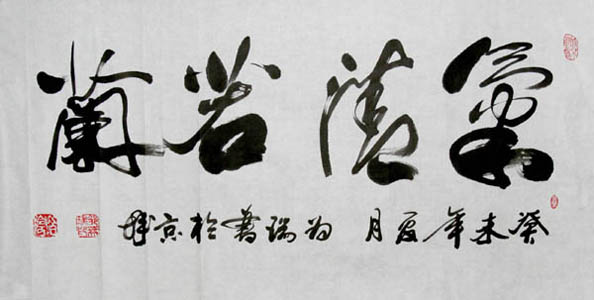 氣清若蘭
癸未年夏月 瑞書於京